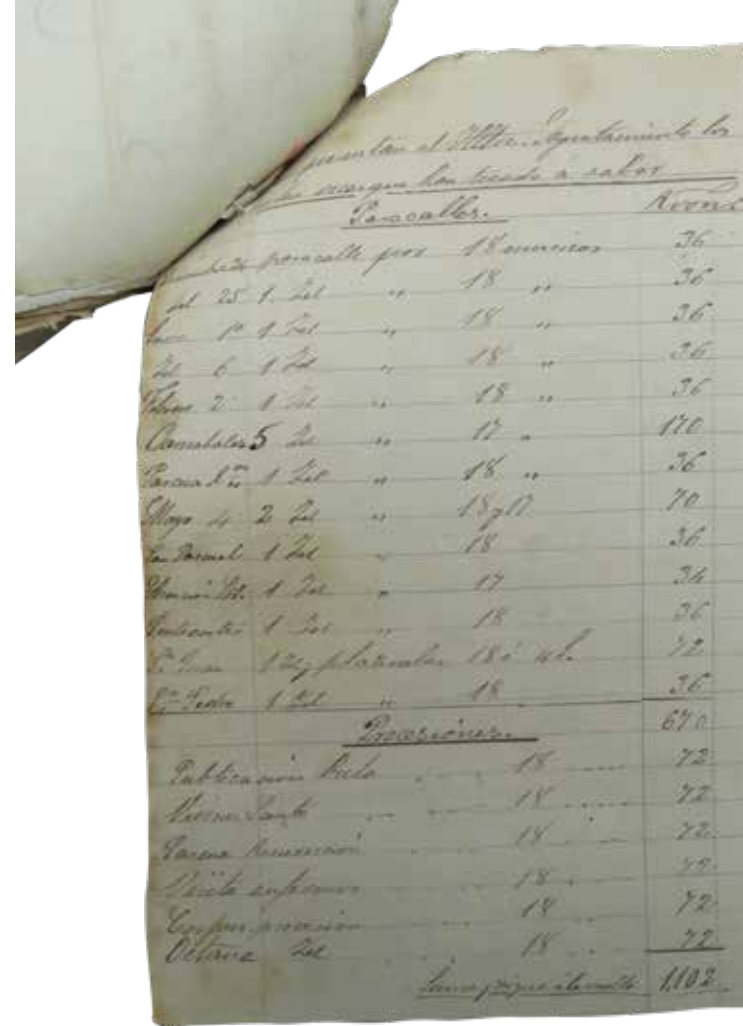 presentan al Iltre. Ayuntamiento los
que han tocado a saber
Pasacalles. Rvones
pasacalle por 18 musicos 36
del 25 1 Id " 18 " 36
1º 1 Id " 18 " 36
Id 6 1 Id " 18 " 36
Febrero 2 1 Id " 18 " 36
Carnabales 5 Id " 17 " 170
Pascua 1 Id " 18 " 36
Mayo 4 2 Id " 18 y 17 70
San Pascual 1 Id " 18 36
1 Id " 17 34
Pentecostes 1 Id " 18 36
Sn Juan 1 Id y 18 á 4 72
Sn Pedro 1 Id " 18 36
670
Procesiones.
Publicacion Bula 18 72
Viernes Santo 18 72
Pascua Resurrección 18 72
Visita enfermos 18 72
Corpus procesion 18 72
Octava Id 18 72
Suma y sigue 1102